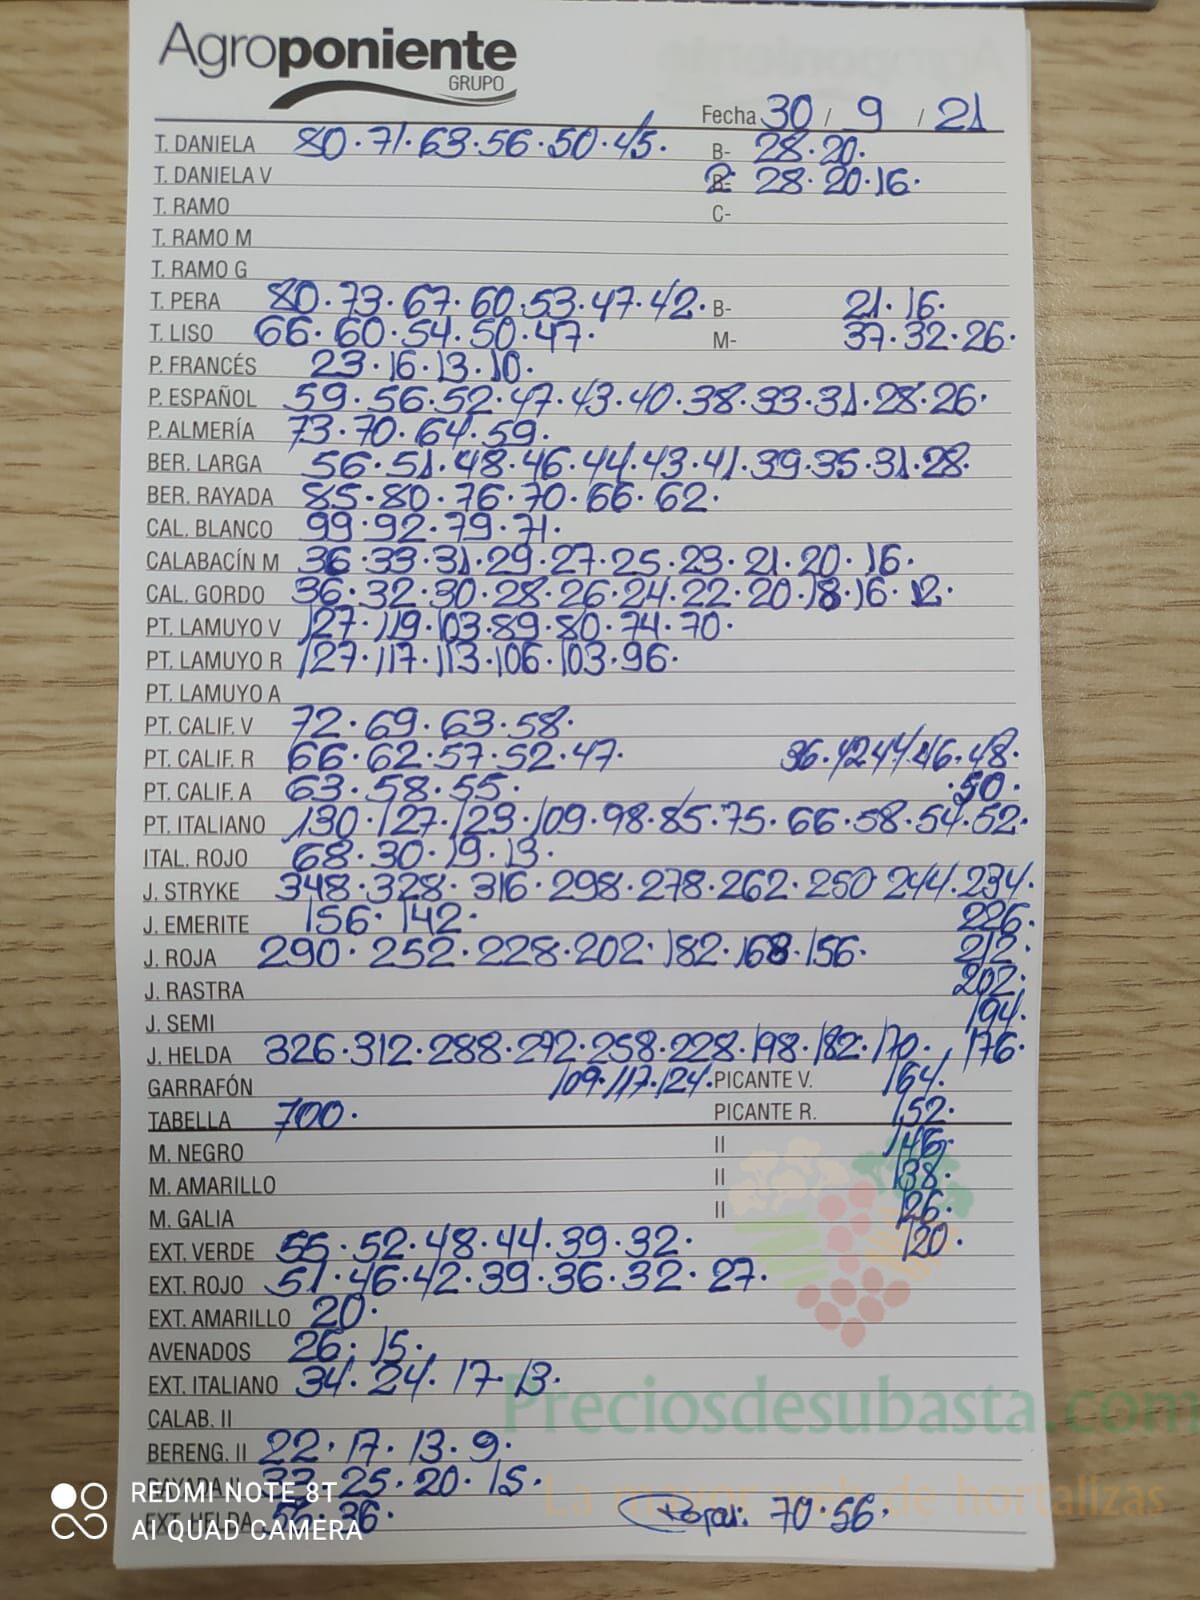 Agroponiente
GRUPO
Fecha 30 / 9 / 21
T. DANIELA 80·71·63·56·50·45· B- 28·20·
T. DANIELA V 2- 28·20·16·
T. RAMO C-
T. RAMO M
T. RAMO G
T. PERA 80·73·67·60·53·47·42· B- 21·16·
T. LISO 66·60·54·50·47· M- 37·32·26·
P. FRANCÉS 23·16·13·10·
P. ESPAÑOL 59·56·52·47·43·40·38·33·31·28·26·
P. ALMERÍA 73·70·64·59·
BER. LARGA 56·51·48·46·44·43·41·39·35·31·28·
BER. RAYADA 85·80·76·70·66·62·
CAL. BLANCO 99·92·79·71·
CALABACÍN M 36·33·31·29·27·25·23·21·20·16·
CAL. GORDO 36·32·30·28·26·24·22·20·18·16·12·
PT. LAMUYO V 127·119·103·89·80·74·70·
PT. LAMUYO R 127·117·113·106·103·96·
PT. LAMUYO A
PT. CALIF. V 72·69·63·58·
PT. CALIF. R 66·62·57·52·47· 36·42·44·46·48·
PT. CALIF. A 63·58·55· ·50·
PT. ITALIANO 130·127·123·109·98·85·75·66·58·54·52·
ITAL. ROJO 68·30·19·13·
J. STRYKE 348·328·316·298·278·262·250 244·234·
J. EMERITE 156·142· 226·
J. ROJA 290·252·228·202·182·168·156· 212·
J. RASTRA 202·
J. SEMI 194·
J. HELDA 326·312·288·272·258·228·198·182·170· 176·
GARRAFÓN 109·117·124· PICANTE V. 164·
TABELLA 700· PICANTE R. 152·
M. NEGRO II 146·
M. AMARILLO II 138·
M. GALIA II 126·
EXT. VERDE 55·52·48·44·39·32· 120·
EXT. ROJO 51·46·42·39·36·32·27·
EXT. AMARILLO 20·
AVENADOS 26·15·
EXT. ITALIANO 34·24·17·13·
Preciosdesubasta.com
CALAB. II
BERENG. II 22·17·13·9·
RAYADA II 33·25·20·15·
La mayor web de hortalizas
EXT. HELDA 56·36· 70·56·
REDMI NOTE 8T
AI QUAD CAMERA